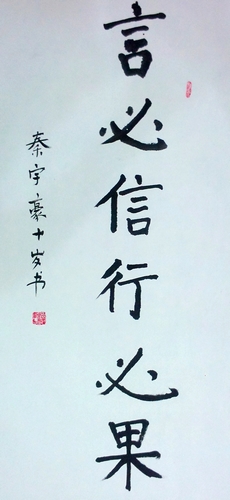 言必信行必果
秦宇豪十岁书